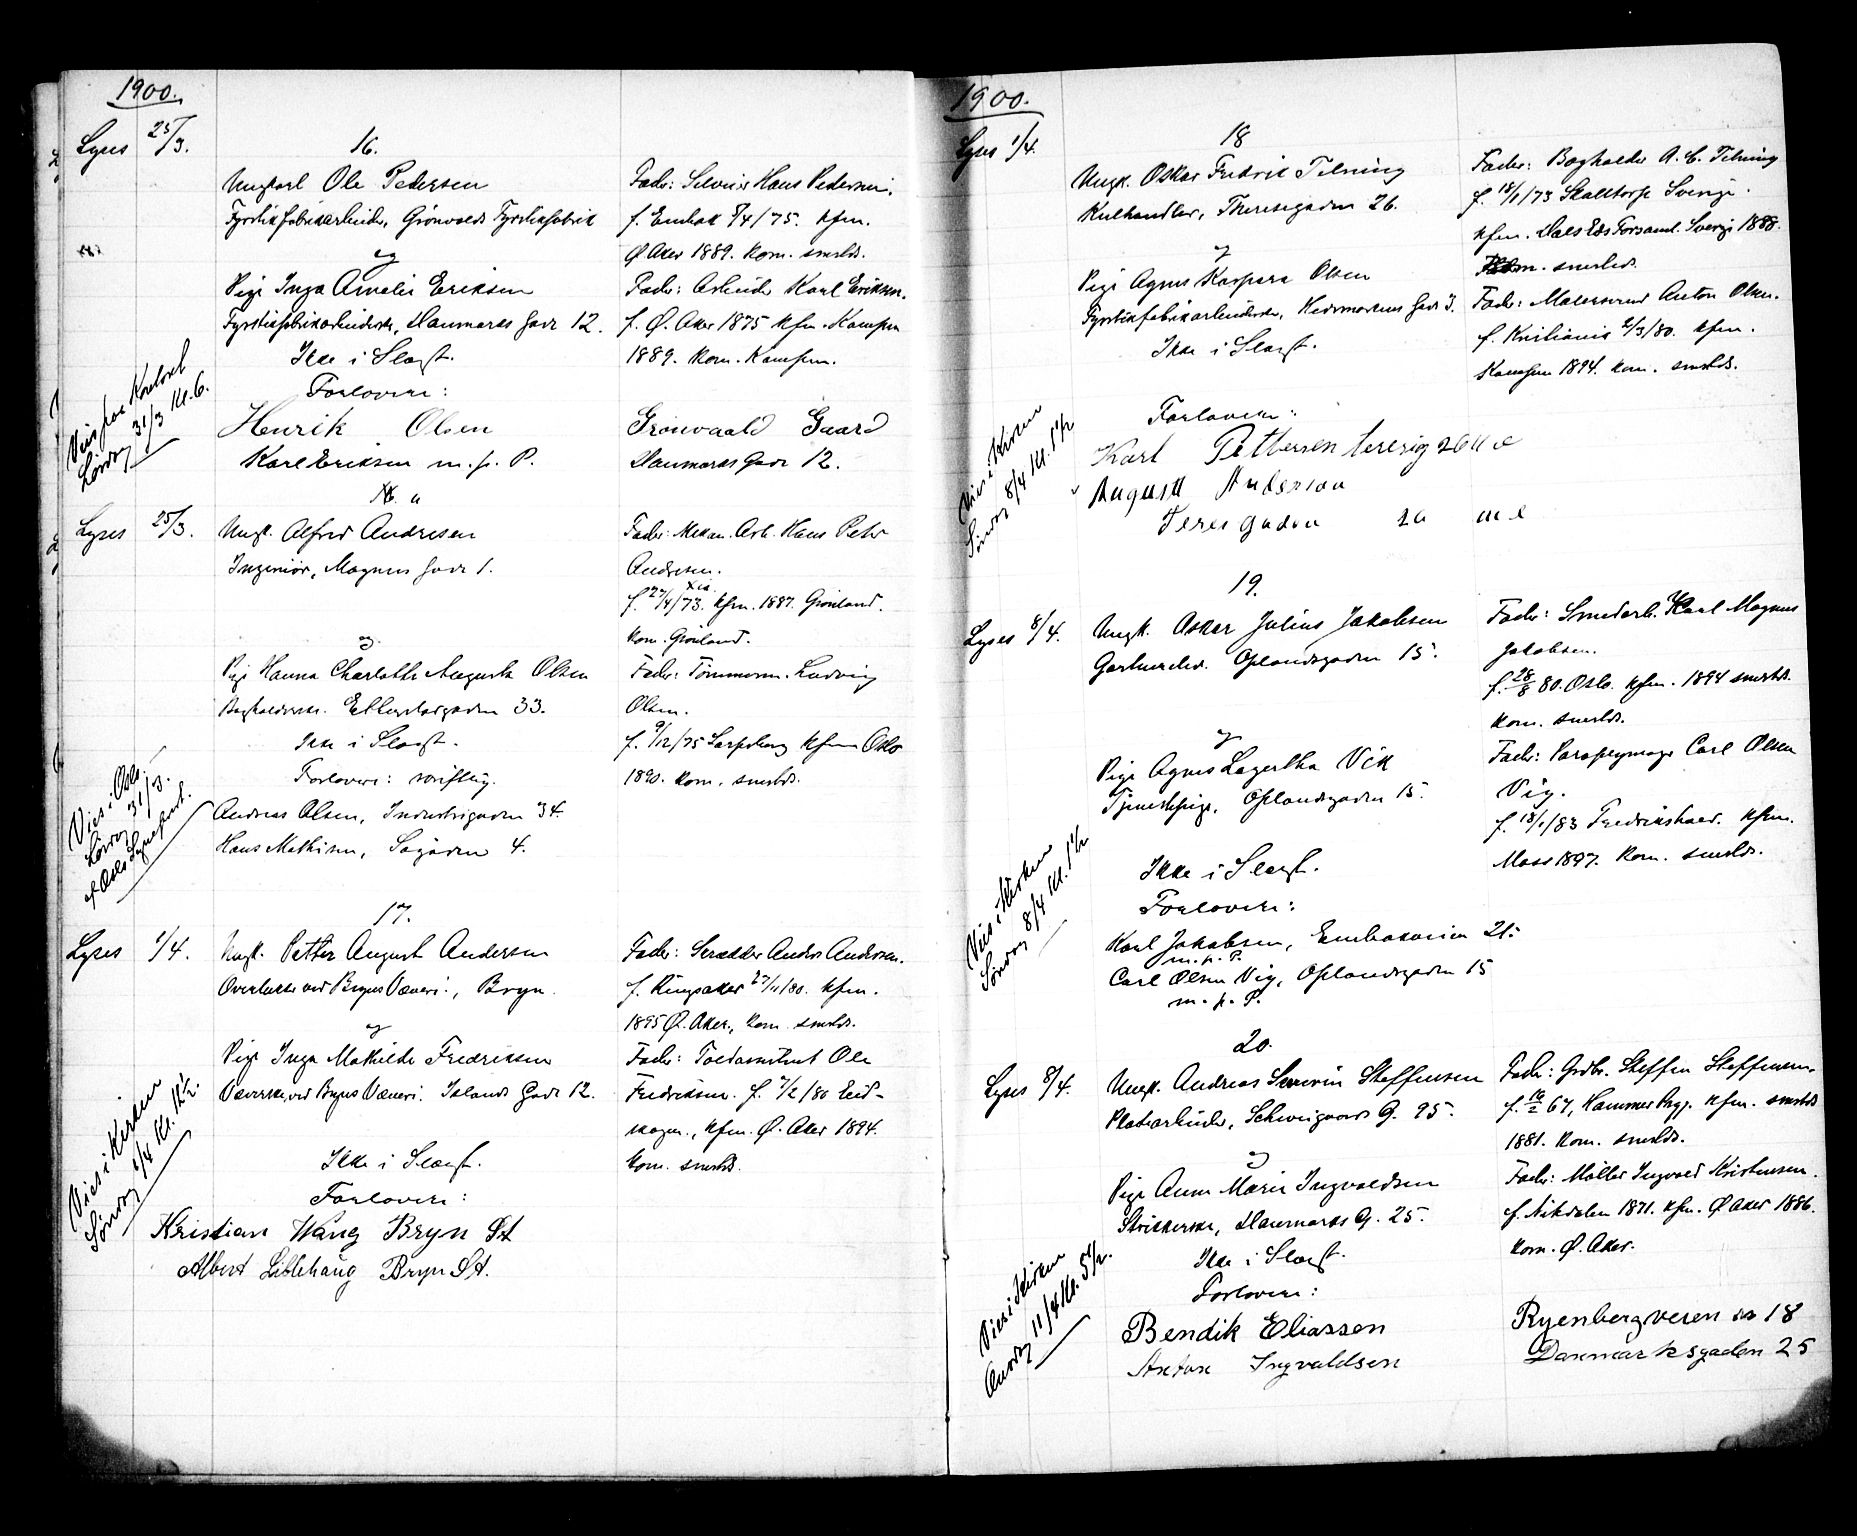 1900.
Lyses 25/3.
16.
Ungkarl Ole Pedersen
Fyrstikfabrikarbeider, Grönvolds Fyrstikfabrik
Fader: Selveier Hans Pedersen.
f. 4/75. kfm.
Ø. Aker 1889. kom. smstds.
og
Pige Inga Amalie Eriksen
Fyrstikfabrikarbeiderske, Danmarks Gade 12.
Fader: Arbeider Karl Eriksen.
f. Ø. Aker 1875 kfm. Kampen
1889. kom. Kampen.
Ikke i Slægt.
Forlovere:
Henrik Olsen Grönvaald Gaard
Karl Eriksen m. p. P. Danmarks Gade 12.
Vies paa Kontoret
Lørdag 31/3 Kl. 6.
16. a
Lyses 25/3.
Ungk. Alfred Andresen
Ingeniör, Magnus Gade 1.
Fader: Mekan. Arb. Hans Peter
Andresen.
Xia
f. 27/4/73. kfm. 1887. Grönland.
kom. Grönland.
og
Pige Hanna Charlotte Augusta Olsen
Bogholderske. Eilertsgaden 33.
Fader: Tömmerm. Ludvig
Olsen.
f. 9/12/75 Sarpsborg kfm Oslo
1890. kom. smstds.
Ikke i Slægt.
Forlovere: skriftlig.
Andreas Olsen, Industrigaden 34.
Hans Mathisen, Sogaden 4.
Vies i Oslo
Lørdag 31/3.
af Oslo Sognepræst.
17.
Lyses 1/4.
Ungk. Petter August Andersen
ved Bryns Væveri, Bryn.
Fader: Skrædder Anders Andersen.
f. Ringsaker 27/11/80. kfm.
1895 Ø. Aker, kom. smstds.
og
Pige Inga Mathilde Fredriksen
Væverske ved Bryns Væveri. Islands Gade 12.
Fader: Toldassistent Ole
Fredriksen. f. 7/2/80 Eid-
skogen., kfm. Ø. Aker 1894.
kom. smstds.
Ikke i Slægt.
Forlovere:
Kristian Wang Bryn St
Albert Lillehaug Bryn St.
Vies i Kirken
Søndag 1/4 Kl. 12½.
1900.
Lyses 1/4.
18
Ungk. Oskar Fredrik Tilning
Kulhandler, Theresegaden 26.
Fader: Bogholder A. C. Tilning
f. 18/1/73 Skalltorp Sverige.
kfm. Dals Eds Forsaml. Sverige 1888.
kom. smstds.
og
Pige Agnes Kaspara Olsen
Fyrstikfabrikarbeiderske, Hedemarkens Gade 3.
Fader: Malersvend Anton Olsen.
f. Kristiania 6/3/80. kfm.
Kampen 1894. kom. smstds.
Ikke i Slægt.
Forlovere:
Karl Pettersen
August Anderson
Teres gadan
Vies i Kirken
Søndag 8/4 Kl. 1½
19.
Lyses 8/4.
Ungk. Oskar Julius Jakobsen
Gartnerelev. Oplandsgaden 15.
Fader: Smedarb. Karl Magnus
Jakobsen.
f. 28/8 80. Oslo. kfm. 1894 smstds.
kom. smstds.
og
Pige Agnes Lagertha Vik
Tjenestepige, Oplandsgaden 15.
Fader: Paraplymager Carl Olsen
Vig.
f. 18/1/83 Fredrikshald. kfm.
Moss 1897. kom. smstds.
Ikke i Slægt.
Forlovere:
Karl Jakobsen, Enebakveien 21.
m. p. P.
Carl Olsen Vig, Oplandsgaden 15
m. p. P.
Vies i Kirken
Søndag 8/4 Kl. 1½
20.
Lyses 8/4.
Ungk. Andreas Severin Steffensen
Pladsarbeider, Schweigaards G. 95.
Fader: Grdbr. Steffen Steffensen.
f. 67, Hammer Prgj. kfm. smstds
1881. kom. smstds.
og
Pige Anna Marie Ingvaldsen
Strikkerske, Danmarks G. 25.
Fader: Møller Ingvald Kristensen.
f. Nitedalen 1871. kfm. Ø. Aker 1886.
kom. Ø. Aker.
Ikke i Slægt.
Forlovere:
Bendik Eliassen Ryenbergveien 18
Anton Ingvaldsen Danmarksgaden 25
Vies i Kirken
Onsdag 11/4 Kl. 5½.